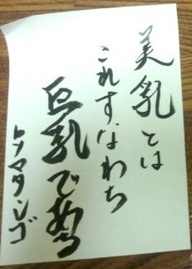 美乳とは
これすなわち
巨乳である
トノマタンゴ